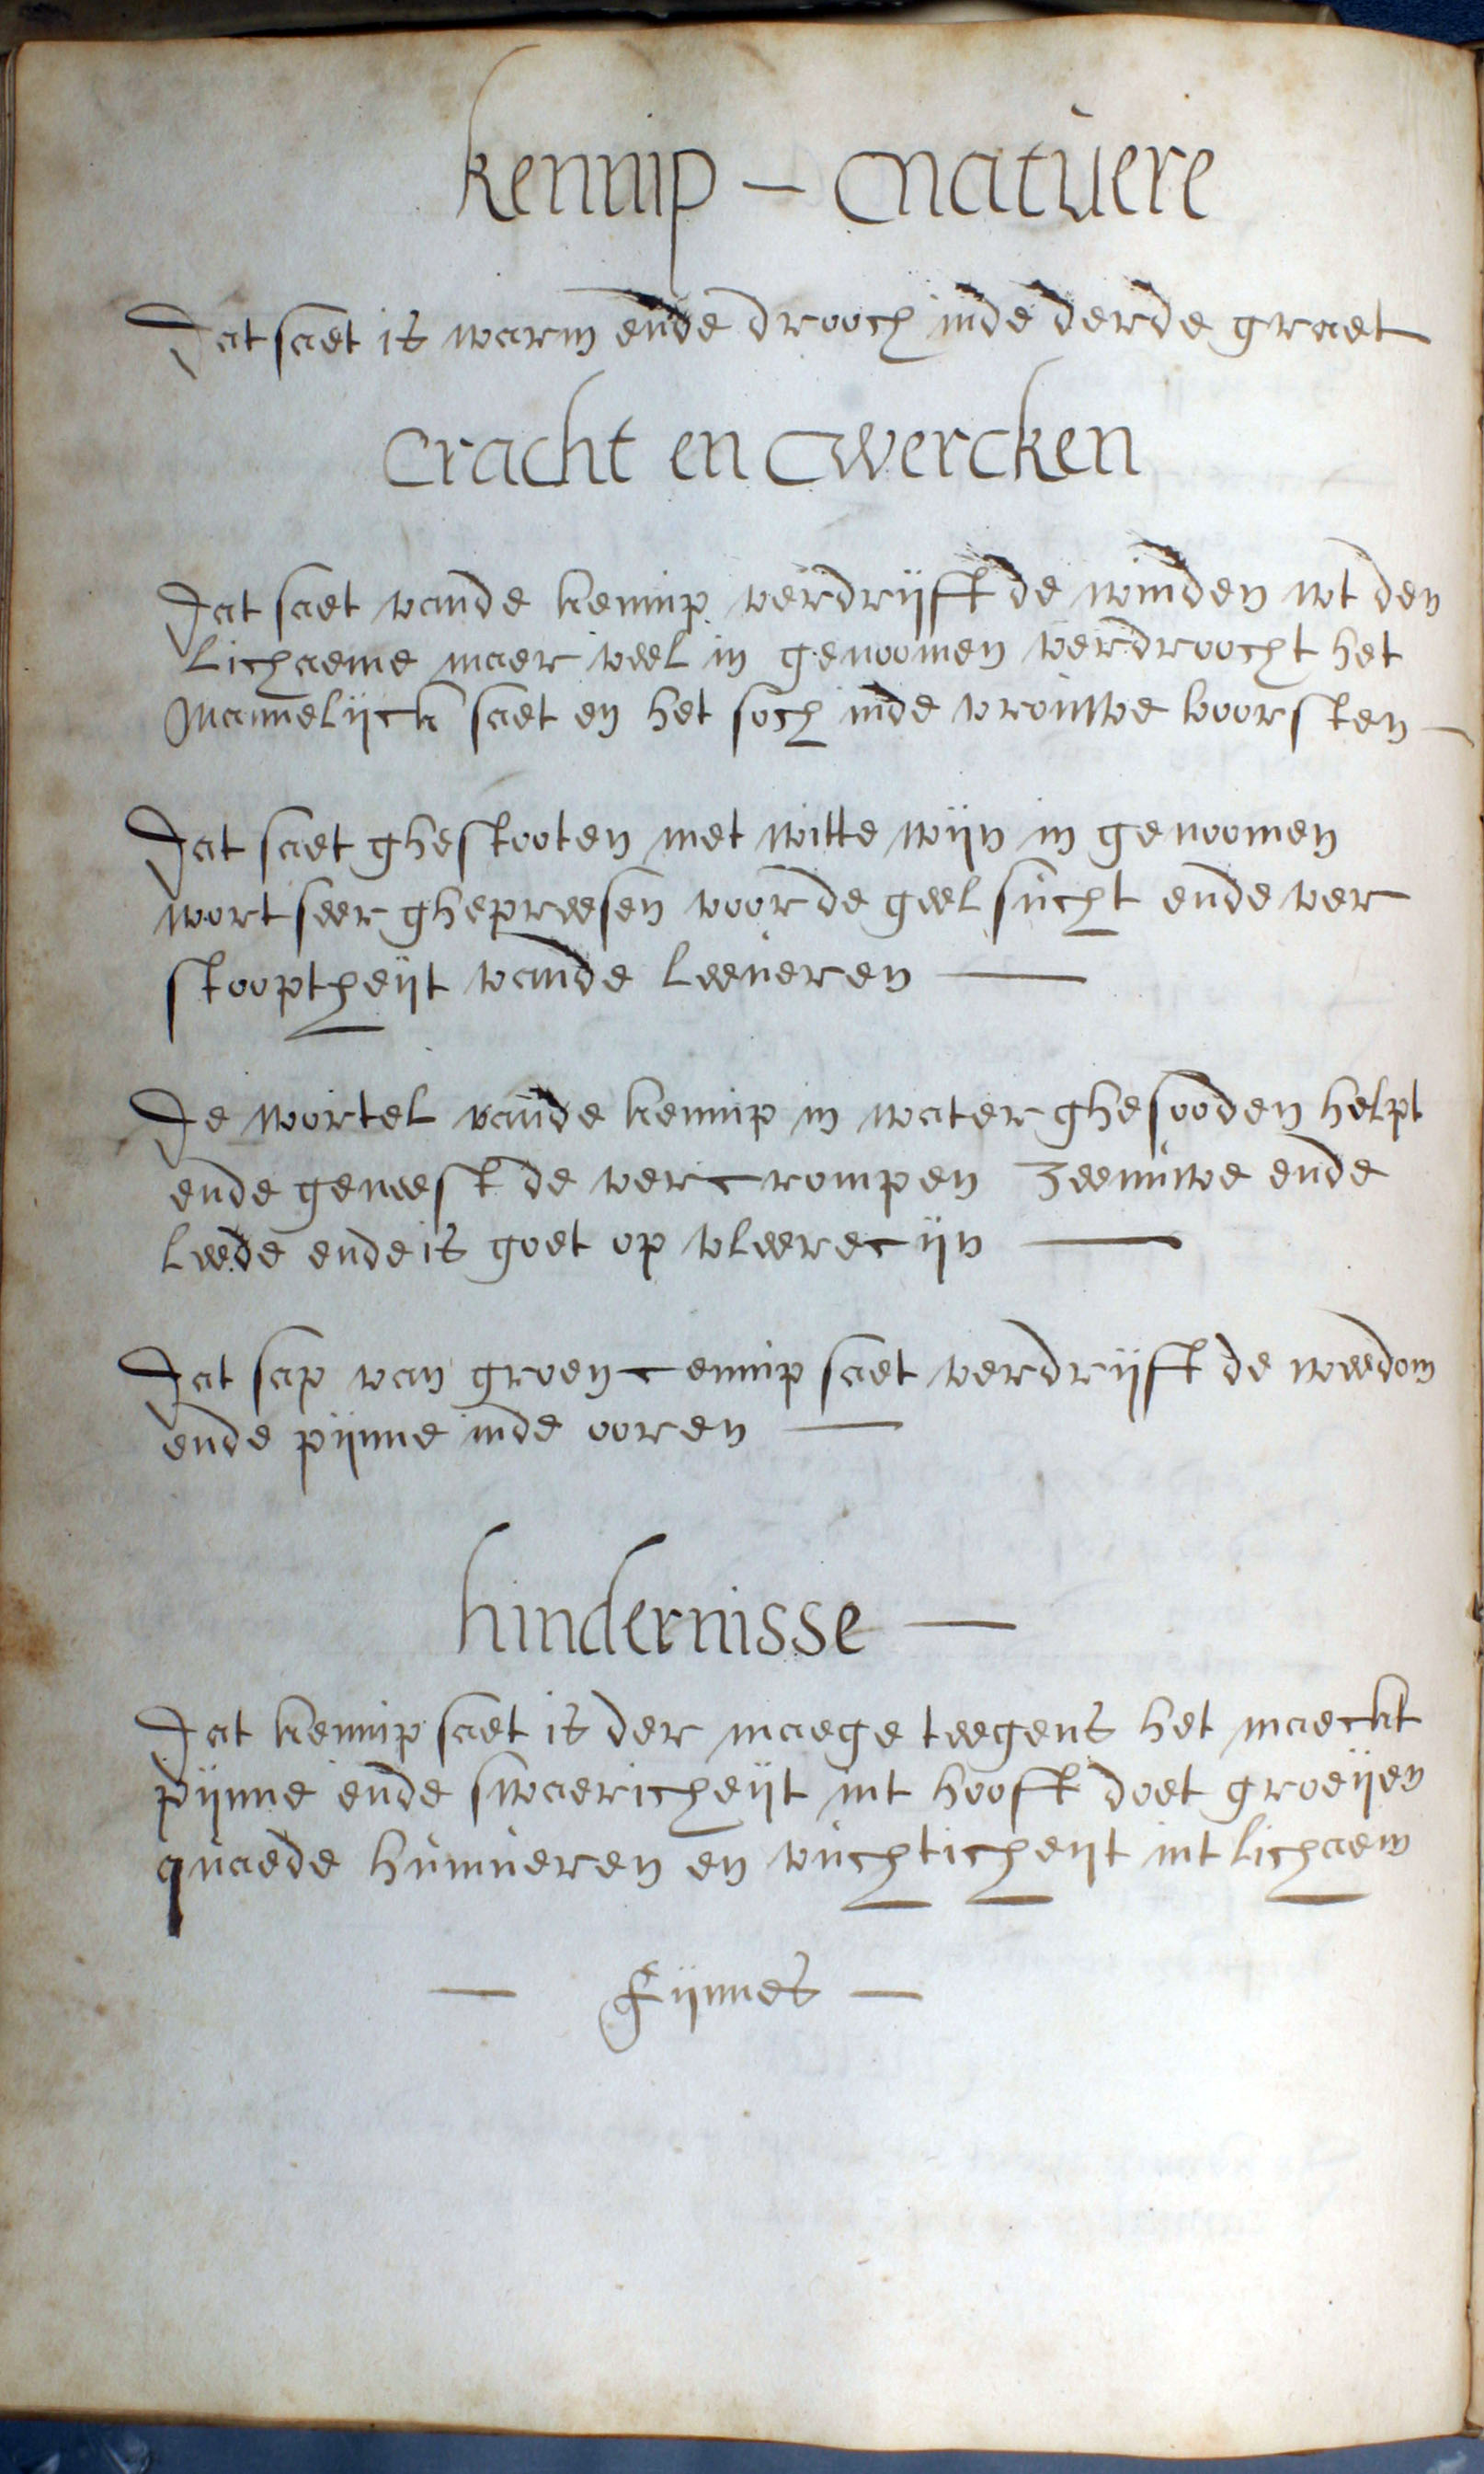 kennip – natuere
Dat saet is warm ende drooch inde derde graet
cracht en wercken
Dat saet vande kennip verdrijft de winden wt den
lichaeme maer veel in genoomen verdroocht het
Mannelijck saet en het soch inde vrouwe boorsten –
Dat saet ghestooten met witte wijn in genoomen
wort seer ghepreesen voor de geelsucht ende ver
stooptheijt vande leeveren —
De wortel vande kennip in water ghesooden helpt
ende geneest de vercrompen zeenuwe ende
leede ende is goet op vleerecijn —
Dat sap van groen cennip saet verdrijft de weedom
ende pijnne inde ooren —
hindernisse —
Dat kennip saet is der maege teegens het maeckt
pijnne ende swaericheijt int hooft doet groeijen
quaede humueren en vuchticheijt int lichaem
— Fijnnes —